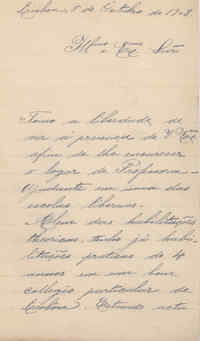 Lisboa, 8 de Outubro de 1908.
Illmo e Exmo Snr
Tomo a liberdade de
vir á presença de V. Exa
afim de lhe
o logar de Professora-
Ajudante em uma das
escolas
Alem das habilitações
theoricas, tenho já habi-
litações praticas de 4
annos em um bom
collegio particular de
Lisboa.